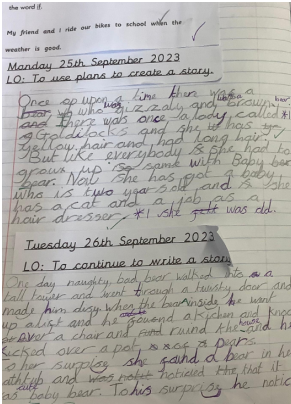 the word if.
My friend and I ride our bikes to school when the
weather is good.
Monday 25th September 2023
LO: To use plans to create a story.
Once up upon a time there was a
bear who was grizzaly and brown
and there was once a lady called
Goldilocks and she has
yellow hair and had long hair.
But like everybody is she had to
grown up so same with Baby bear
bear. Now she has got a baby
who is two years old and is she
has a cat and a job as a
hair dresser. *1 she was old.
Tuesday 26th September 2023
LO: To continue to write a story
One day naughty bad bear walked into a
tall tower and went through a twisty door and
made him dizy when the bear inside he went
up a list and he found a kitchen and
over a chair and round the house and he
kicked over a pot
to her surprise she found a bear in he
and was noticed the that it
as baby bear. To his surprise he notic